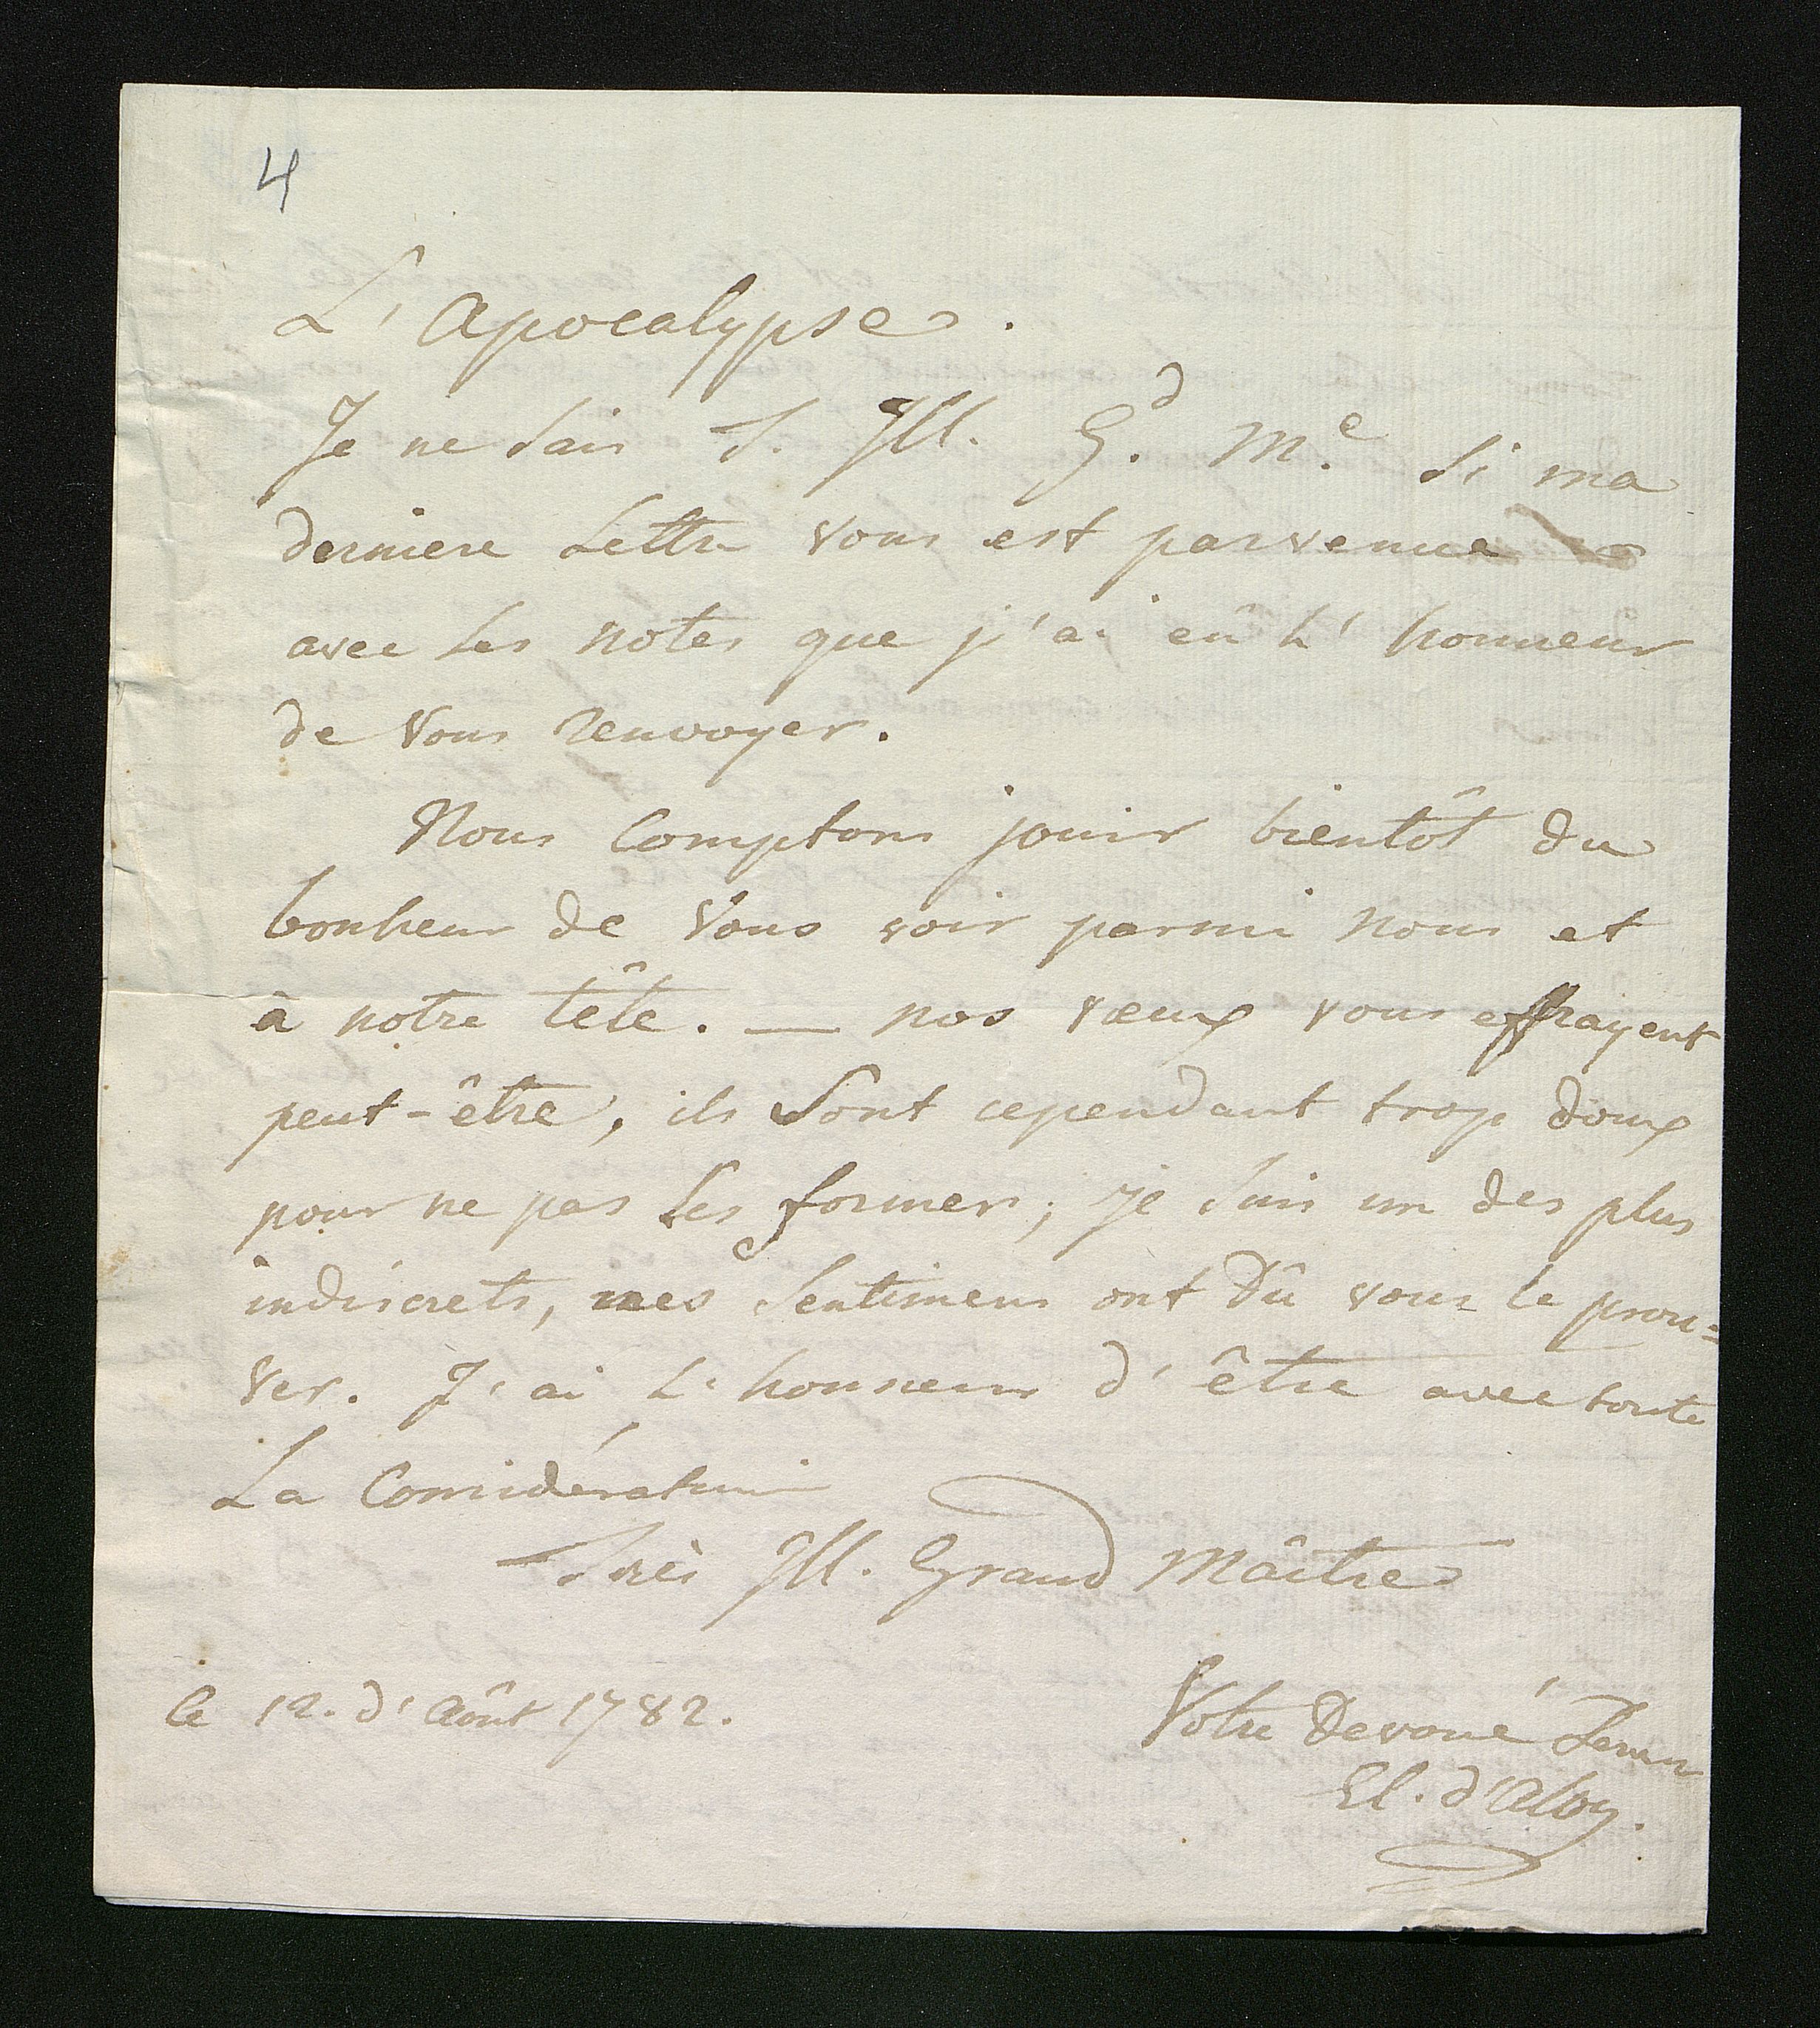 4
L'apocalypse.
Je ne sais T. Ill. G.d M.e si ma
derniere Lettre vous est parvenue
avec les notes que j'ai eû l'honneur
de Vous renvoyer.
Nous Comptons jouir bientôt du
bonheur de Vous voir parmi nous et
à notre tête. — nos vœux vous effrayent
peut-être, ils sont cependant trop doux
pour ne pas les former; je suis un des plus
indiscrets, mes sentimens ont dû vous le prou=
ver. J'ai l'honneur d'être avec toute
La Considération
Très Ill. Grand Maître
le 12. d'août 1782.
Votre Devoué
El. d'Alby.